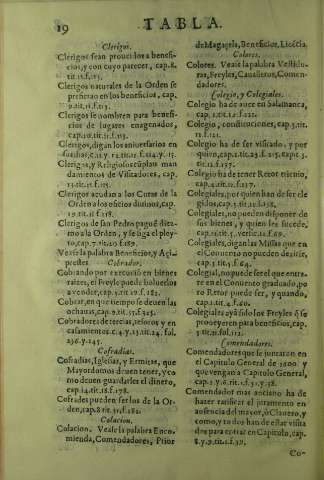 19
TABLA.
Clerigos.
Clerigos sean proueidos a benefi-
cios, y con cuyo parecer, cap. 8.
tit. 15. f. 113.
Clerigos naturales de la Orden se
prefieran en los beneficios, cap.
9. tit. 11. f. 113.
Clerigos se nombren para benefi-
cios de lugares enagenados,
cap. 10. tit. 11. f. 113.
Clerigos, digan los aniuersarios en
Clerigos, y Religiosos cuplan man
damientos de Visitadores, cap.
Clerigos acudan a los Curas de la
Orden a los oficios diuinos, cap.
19. tit. 11. f. 118.
Clerigos de san Pedro pague diez-
mo a la Orden, y se siga el pley-
to, cap. 7. tit. 20. f. 189.
Vease la palabra Beneficios, y Aci-
prestes.
Cobrador.
Cobrando por execucio en bienes
raizes, el Freyle puede boluerlos
a vender, cap. 5.
Cobrar, en que tiempo se deuen las
ochauas, cap. 9. tit. 57. f. 325.
Cobradores de tercias, tesoros, y en
casamientos. c. 4. y 13. tit. 24. fol.
236. y 245.
Cofradias.
Cofradias, Iglesias, y Ermitas, que
Mayordomos deuen tener, y co
mo deuen guardarles el dinero,
cap. 14. tit. 18. f. 178.
Cofrades pueden ser los de la Or-
den, cap. 8. tit. 31. f. 282.
Colacion.
Colacion. Vease la palabra Enco-
mienda, Comendadores, Prior
de Magazela, Beneficios, Licécia.
Colores.
Colores. Vease la palabra Vestidu-
ras, Freyles, Caualleros, Comen-
dadores.
Colegio, y Colegiales.
Colegio ha de auer en Salamanca,
cap. 1. tit. 12. f. 121.
Colegio, constituciones, cap. 3. tit.
12. f. 121.
Colegio ha de ser visitado, y por
quien, cap.
Colegio ha de tener Retor trienio,
cap. 4. tit. 12. f. 127.
Colegiales, por quien han de ser ele
gidos, cap. 5. tit. 12. f. 128.
Colegiales, no pueden disponer de
sus bienes, y quien les sucede,
Colegiales, digan las Missas que en
el Conuento no pueden dezirse,
cap. 5. tit. 5. f. 64.
Colegial, no puede ser el que entra-
re en el Conuento graduado, po
ro Retor puede ser, y quando,
cap. 1. tit. 4. f. 40.
Colegiales aya solo los Freyles q se
prouyeren para beneficios, cap.
Comendadores.
Comendadores que se juntaron en
el Capitulo General de 1600. y
que vengan a Capitulo General,
cap. 3. y 6. tit. 1. f. 31. y 38.
Comendador mas anciano ha de
hazer ratificar el juramento en
ausencia del mayor, ò Clauero, y
como, y todos han de estar visita
dos para entrar en Capitulo, cap.
8. y 9. tit. 1. f. 32.
Co-